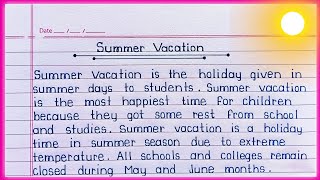 Date __/__/__
Summer Vacation
Summer Vacation is the holiday given in
summer days to students. Summer vacation
is the most happiest time for children
because they got some rest from school
and studies. Summer vacation is a holiday
time in summer season due to extreme
temperature. All schools and colleges remain
closed during May and June months.